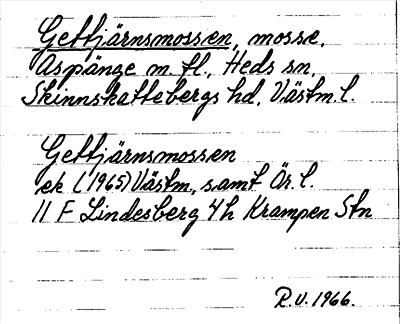 Gettjärnsmossen, mosse.
Aspänge m. fl., Heds sn,
Skinnskattebergs hd, Västm. l.
Gettjärnsmossen
ek (1965) Västm, samt Är. l.
11 F Lindesberg 4h Krampen Stn
R.V. 1966.